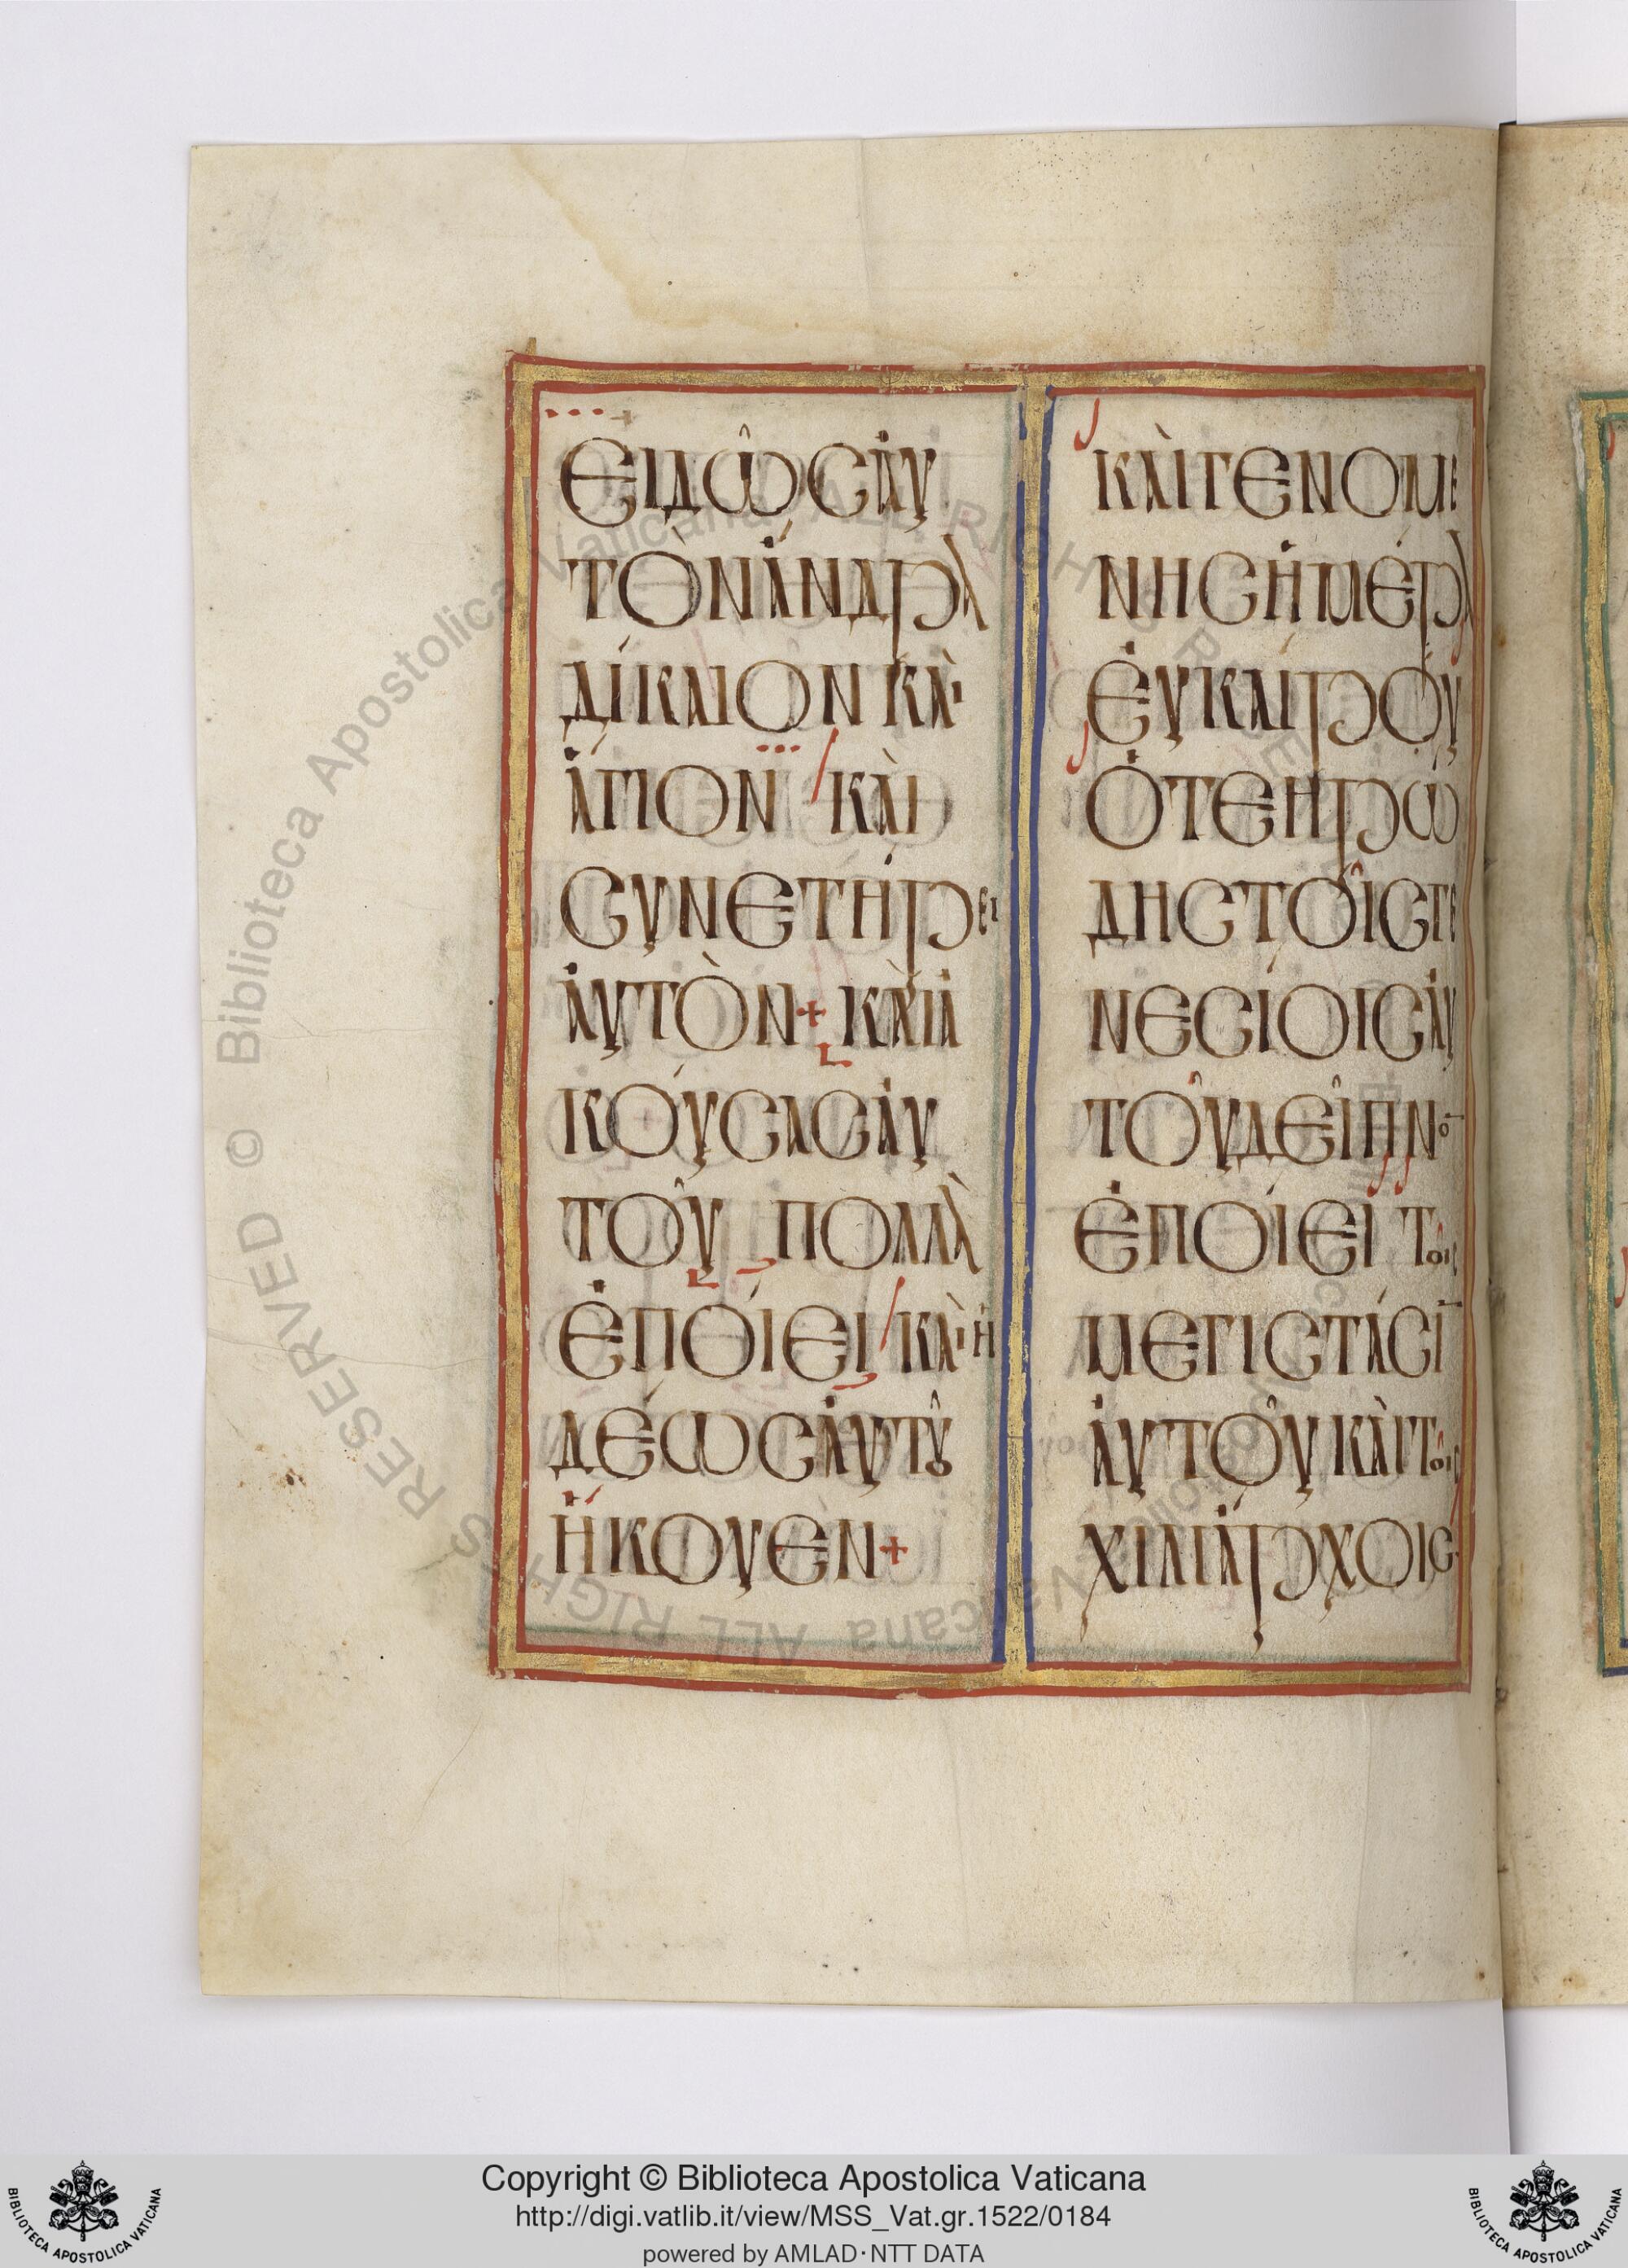 ΕΙΔῶΣἀΥ
ΤῸΝἄΝΔΡΑ
ΔίΚΑΙΟΝ ΚὰΙ
ἅΓΙΟΝ ΚΑὶ
ΣΥΝΕΤήΡΕΙ
ἀΥΤῸΝ + ΚΑὶἀ
ΚΟύΣΑΣἀΥ
ΤΟῦ ΠΟΛΛὰ
ἐΠΟίΕΙ ΚΑὶἡ
ΔέΩΣἀΥΤȣ͂
ἤΚΟΥΕΝ +
ΚΑὶΓΕΝΟΜΕ
ΝΗΣἡΜέΡΑΣ
ἐΥΚΑίΡΟΥ
ὅΤΕΗΡώ
ΔΗΣΤΟῖΣΓΕ
ΝΕΣίΟΙΣἀΥ
ΤΟῦΔΕῖΠΝΟ̄
ἐΠΟίΕΙ ΤΟῖΣ
ΜΕΓΙΣΤᾶΣῙ
ἀΥΤΟῦ ΚΑὶΤΟῖΣ
ΧΙΛΙάΡΧΟΙΣ
Biblioteca Apostolica Vaticana ALL RIGHTS RESERVED ©
Copyright © Biblioteca Apostolica Vaticana
http://digi.vatlib.it/view/MSS_Vat.gr.1522/0184
powered by AMLAD·NTT DATA
BIBLIOTECA APOSTOLICA VATICANA
BIBLIOTECA APOSTOLICA VATICANA